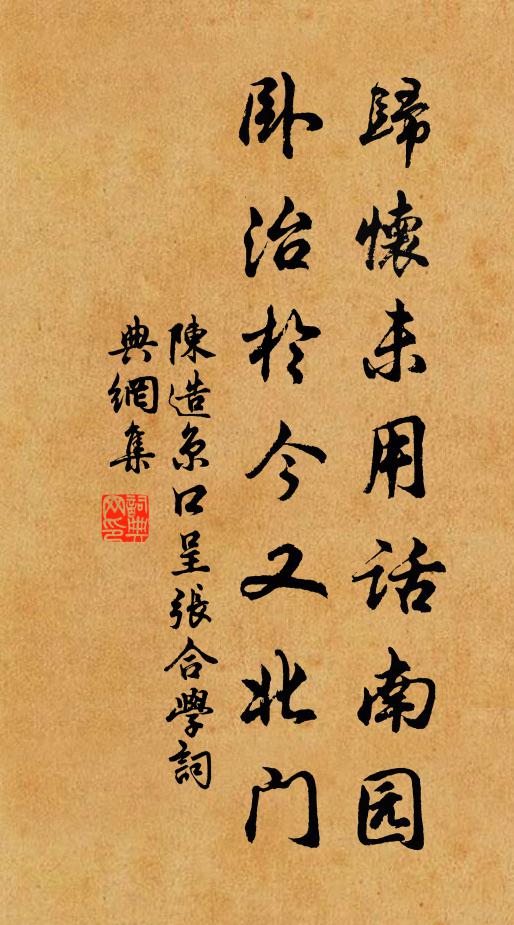 歸懷未用話南园
卧治於今又北门
陳造京口呈張合學詞
典網集
詞典网印